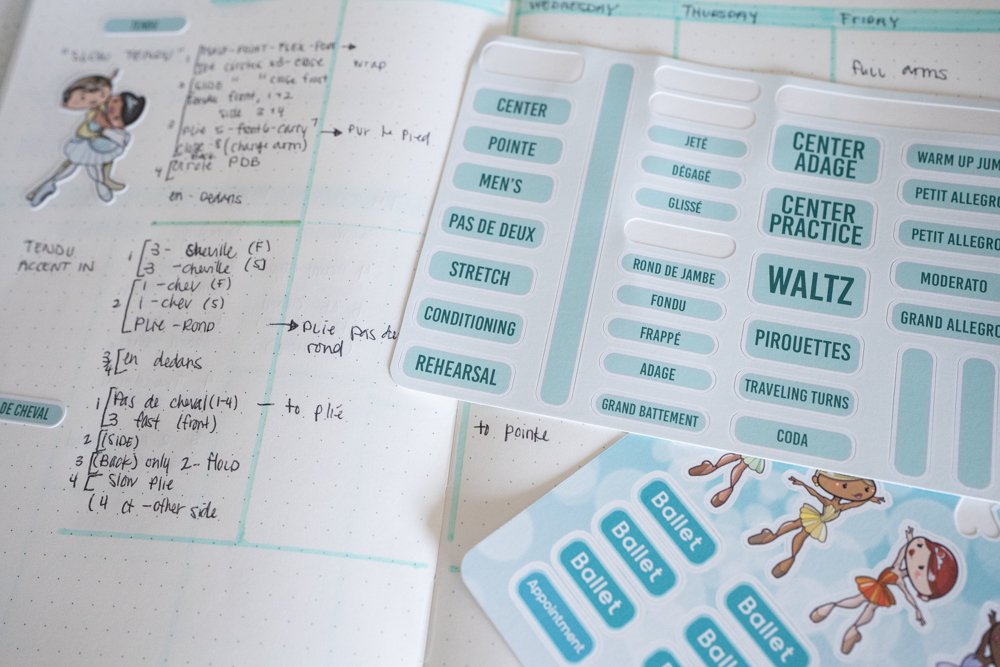 TENDU
"SLOW TENDU"
wrap
side " " close front
tendu front, 1+2
side 3+4
plié 5-front 6-carry 7
close-8 (change arm)
PDB
en-dedans
TENDU
ACCENT IN
1 3- cheville (F)
3 -cheville (S)
2 1-chev (F)
1-chev (S)
Plie-Rond
→ plie pas de
rond
3
4 en dedans
DE CHEVAL
1 Pas de cheval (1-4)
3 fast (front)
— to plié
2 (SIDE)
3 (BACK) only 2-Hold
4 Slow plie
(4 ct-other side
WEDNESDAY
THURSDAY
FRIDAY
full arms
to pointe
CENTER
POINTE
MEN'S
PAS DE DEUX
STRETCH
CONDITIONING
REHEARSAL
JETÉ
DÉGAGÉ
GLISSÉ
ROND DE JAMBE
FONDU
FRAPPÉ
ADAGE
GRAND BATTEMENT
CENTER
ADAGE
CENTER
PRACTICE
WALTZ
PIROUETTES
TRAVELING TURNS
CODA
WARM UP JUM
PETIT ALLEGRO
PETIT ALLEGRO
MODERATO
GRAND ALLEGRO
Ballet
Ballet
Ballet
Appointment
Ballet
Ballet